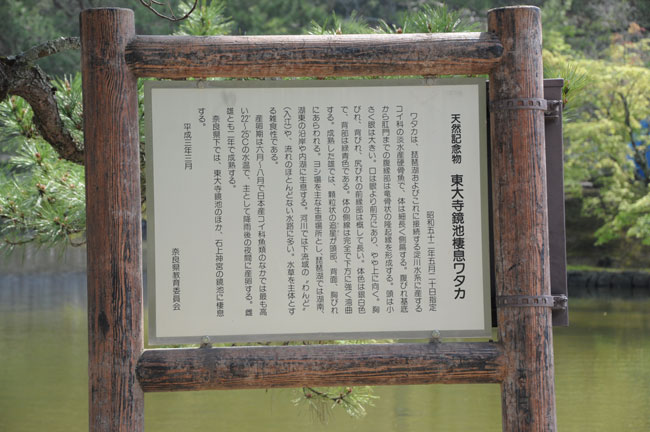 天然記念物　東大寺鏡池棲息ワタカ
昭和五十二年五月二十日指定
ワタカは、琵琶湖およびこれに接続する淀川水系に産する
コイ科の淡水産硬骨魚で、体は細長く側扁する。腹びれ基底
から肛門までの腹縁部は竜骨状の隆起縁を形成する。頭は小
さく眼は大きい。口は眼より前方にあり、やや上に向く。胸
びれ、背びれ、尻びれの前縁部は概して長い。体色は銀白色
で、背部は緑青色である。体の側線は完全で下方に強く湾曲
する。成熟した雄では、顆粒状の追星が頭部、背面、胸びれ
にあらわれる。ヨシ場を主な生息場所とし、琵琶湖では湖南、
湖東の沿岸や内湖に生息する。河川では下流域の〝わんど〟
（入江）や、流れのほとんどない水路に多い。水草を主体とす
る雑食性である。
産卵期は六月〜八月で日本産コイ科魚類のなかでは最も高
い22°〜25°Cの水温で、主として降雨後の夜間に産卵する。雌
雄とも二年で成熟する。
奈良県下では、東大寺鏡池のほか、石上神宮の鏡池に棲息
する。
平成三年三月
奈良県教育委員会